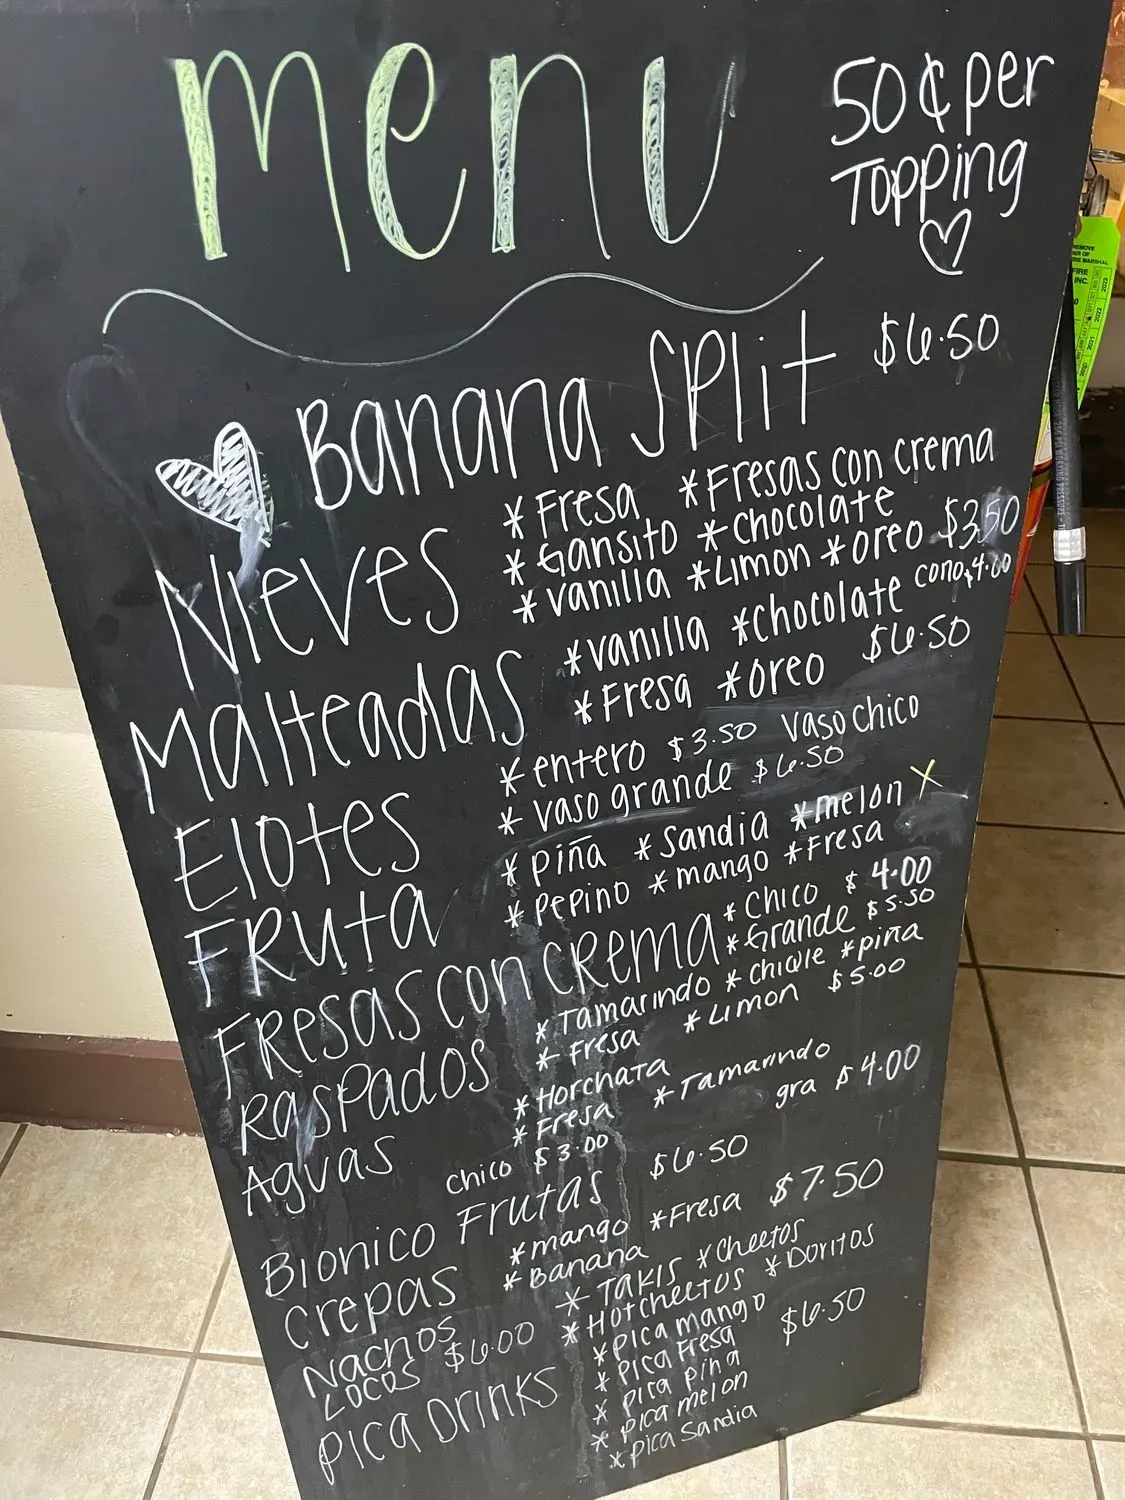 menu
50¢ per
Topping
Banana Split $6.50
Nieves
*Fresa *Fresas con crema
*Gansito *Chocolate
*Vanilla *Limon *oreo $3.50
cono $4.00
Malteadas
*vanilla *chocolate
*Fresa *oreo $6.50
Elotes
*entero $3.50 Vaso chico
*vaso grande $6.50
Fruta
*piña *Sandia *melon x
*pepino *mango *Fresa
Fresas con crema
*Chico $4.00
*Grande $5.50
Raspados
*Tamarindo *chicle *piña
*Fresa *Limon $5.00
Aguas
*Horchata
*Fresa *Tamarindo
chico $3.00 gra $4.00
Bionico Frutas $6.50
Crepas
*mango *Fresa $7.50
*Banana
Nachos
Locos $6.00
*TAKIS *Cheetos
*Hotcheetos *Doritos
Pica Drinks $6.50
*pica mango
*pica Fresa
*pica piña
*pica melon
*pica Sandia
REMOVE
MARSHAL
FIRE
INC.
2023
2022
2021
2020